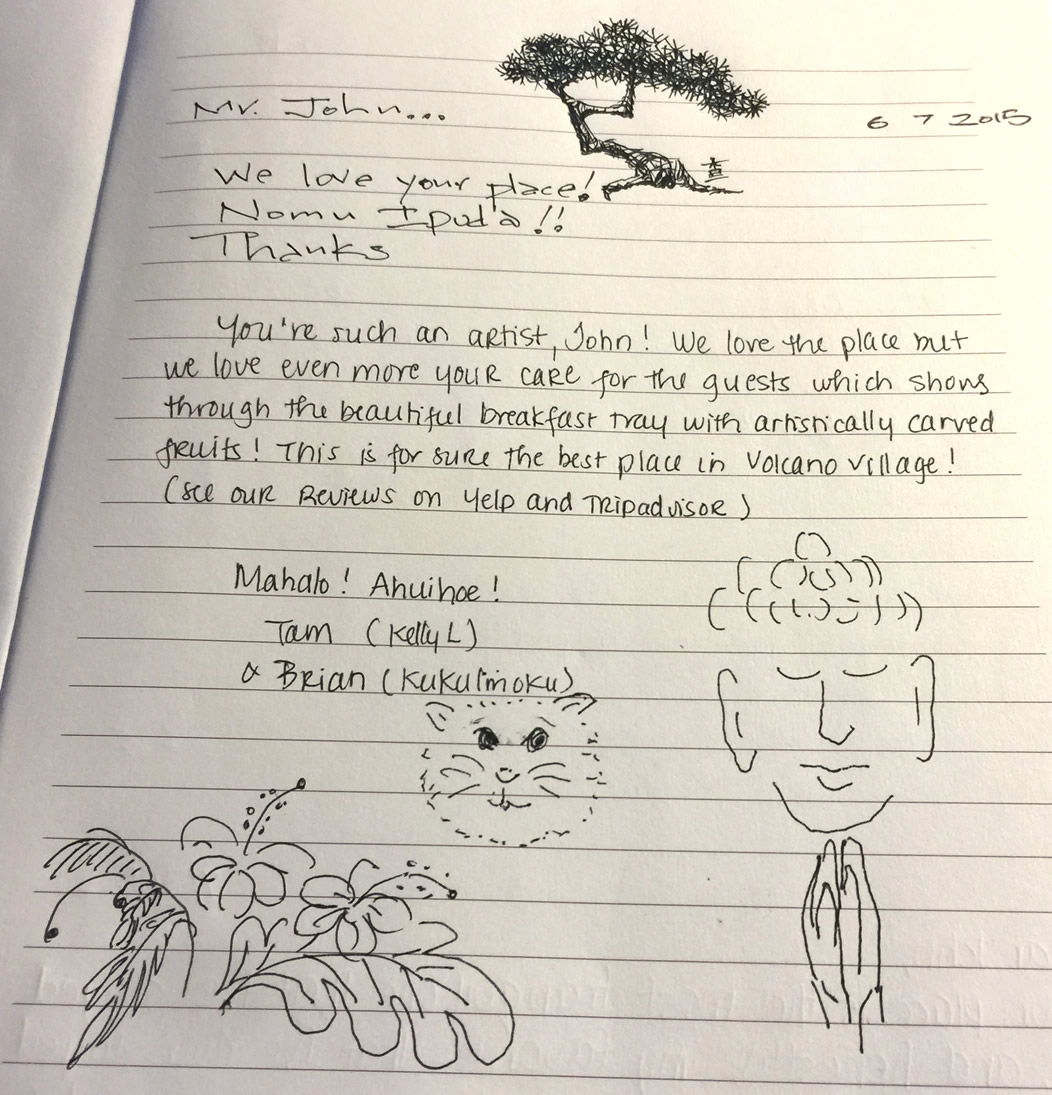 Mr. John...
6 7 2015
We love your place!
Nomu
Thanks
You're such an artist, John! We love the place but
we love even more your care for the guests which shows
through the beautiful breakfast tray with artistically carved
fruits! This is for sure the best place in Volcano Village!
(see our reviews on Yelp and Tripadvisor)
Mahalo! Ahuihoe!
Tam (Kelly L)
& Brian (Kukulimoku)